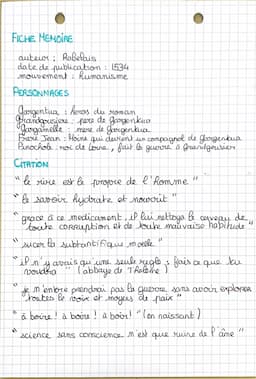 FICHE MEMOIRE
auteur : Rabelais
date de publication : 1534
mouvement : Humanisme
PERSONNAGES
Gargantua : heros du roman
Grandgousier : pere de gargantua
Gargamelle : mere de gargantua
Frere Jean : Moine qui devient un compagnol de gargantua
Picrochole : roi de Lerne, fait la guerre à Grandgousier
CITATION
" le rire est le propre de l'homme "
" le savoir hydrate et nourrit "
" grace a ce medicament, il lui nettoya le cerveau de
toute corruption et de toute mauvaise habitude "
" sucer la substantifique moelle "
" il n'y avait qu'une seule regle : fais ce que tu
voudra " (abbaye de Theleme)
" je n'entreprendrai pas la guerre sans avoir explorer
toutes le voix et moyens de paix "
" à boire ! à boire ! à boire ! " (en naissant)
" science sans conscience n'est que ruine de l'âme "